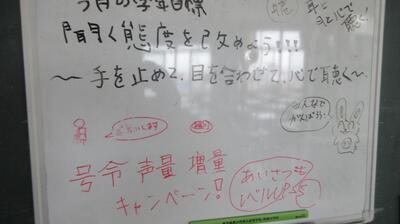 今月の学年目標
聞く態度を改めよう!!!
〜手を止めて、目を合わせて、心で聴く〜
聴
耳に
目と心で
聴く!
みんなで
がんばろう!
お願いします
号令 声量 増量
キャンペーン!
あいさつも
レベルUP